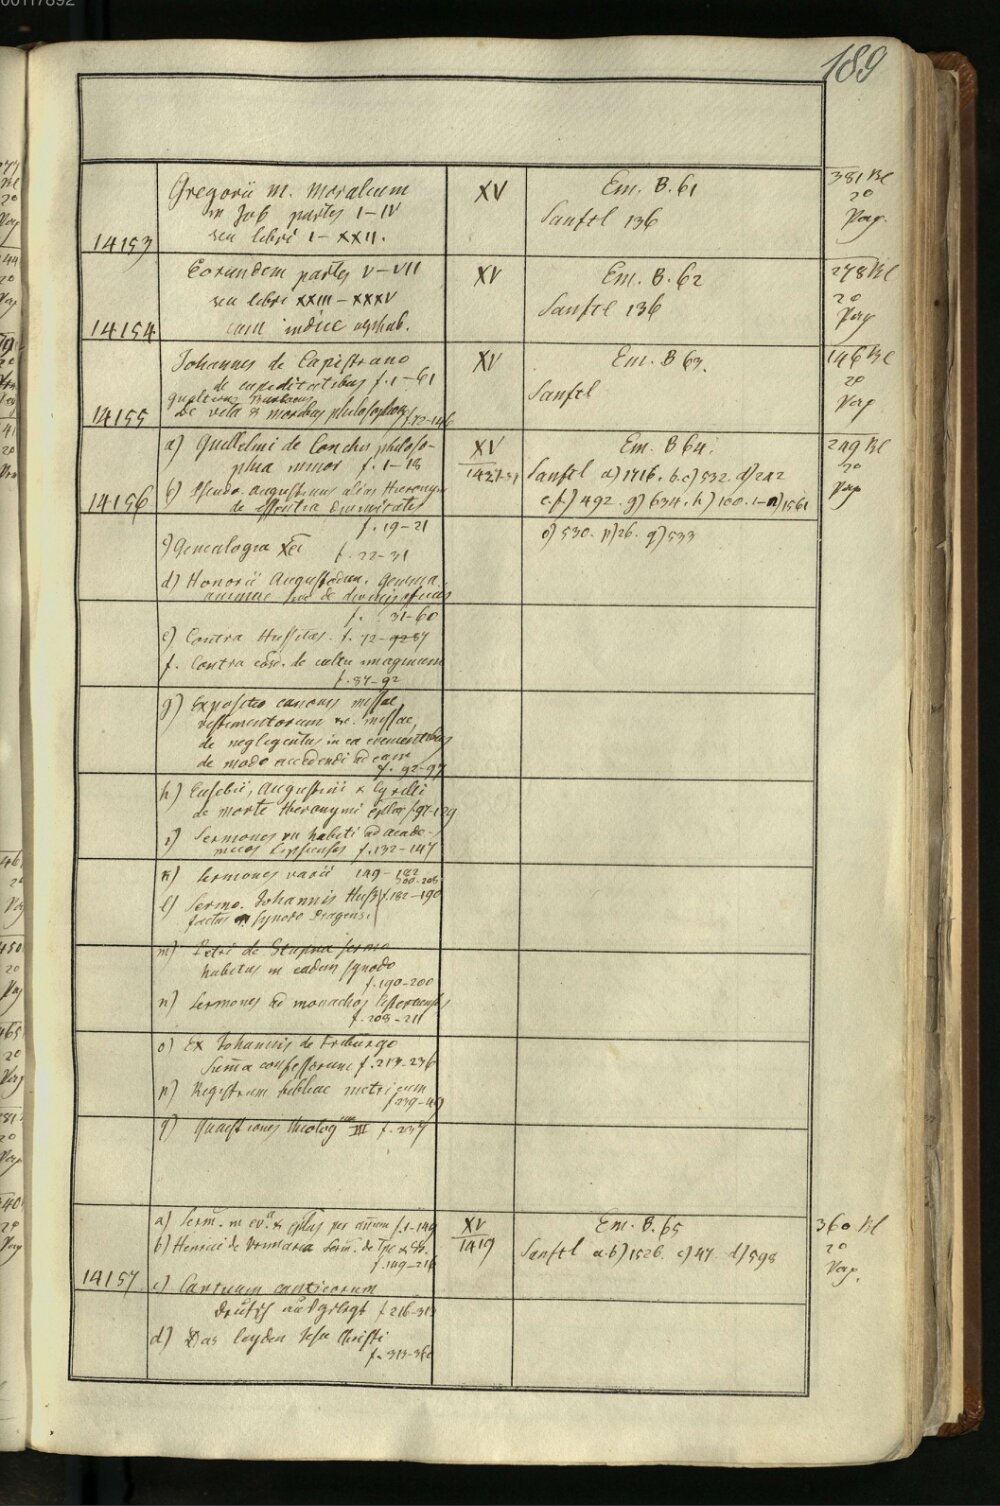 00117892
189
14153
Gregorii m. Moralium
in Job partes I-IV
seu libri I-XXII.
XV
Em. B. 61
Sanftl 136
381 Bl
2o
Pap.
14154
Eorundem partes V-VII
seu libri XXIII-XXXV
cum indice alphab.
XV
Em. B. 62
Sanftl 136
278 Bl
2o
Pap
14155
Johannes de Capistrano
de cupiditatibus f. 1-61
Gualterus Burlaeus
De vita & moribus philosophor f. 72-146
XV
Em. B 63.
Sanftl
146 Bl
2o
Pap
14156
a) Guillelmi de Conchis philoso-
phia minor f. 1-18
b) Pseudo-Augustinus alias Hieronym
de essentia divinitatis
f. 19-21
XV
Em. B 64.
Sanftl a) 1716. b.c) 532. d) 242
e.f) 492. g) 634. h) 100. i-n) 1561
o) 530. p) 26. q) 533
249 Bl
2o
Pap
c) Genealogia Xti
f. 22-31
d) Honorii Augustodun. Gemma
animae sive de divinis officiis
f. 31-60
e) Contra Hussitas. f. 72-87
f. Contra eosd. de cultu imaginum
f. 87-92
g) Expositio canonis missae,
vestimentorum &c. missae,
de negligentiis in ea evenientibus
de modo accedendi ad eam
f. 92-97
h) Eusebii, Augustini & Cyrilli
de morte Hieronymi eplae f. 97-129
i) Sermones habiti ad acade-
micos Lipsienses f. 132-147
k) Sermones varii 149-182
200-208
l) Sermo Johannis Huss f. 182-190
factus in synodo Pragensi
m) Petri de Stupna sermo
habitus in eadem synodo
f. 190-200
n) Sermones ad monachos
f. 208-211
o) Ex Johannis de Friburgo
Suma confessorum f. 213-236
p) Registrum bibliae metricum
f. 239-49
q) Quaestiones theolog III f. 237
14157
a) Serm. in ev. & eplas per annum f. 1-149
b) Henrici de Vrimaria Serm. de Tpe & SS.
f. 149-216
c) Canticum canticorum
deutsch ausgelegt f. 216-313
d) Das leyden Jesu Christi
f. 313-360
XV
1419
Em. B. 65
Sanftl a.b) 1526. c) 47. d) 598
360 Bl
2o
Pap.